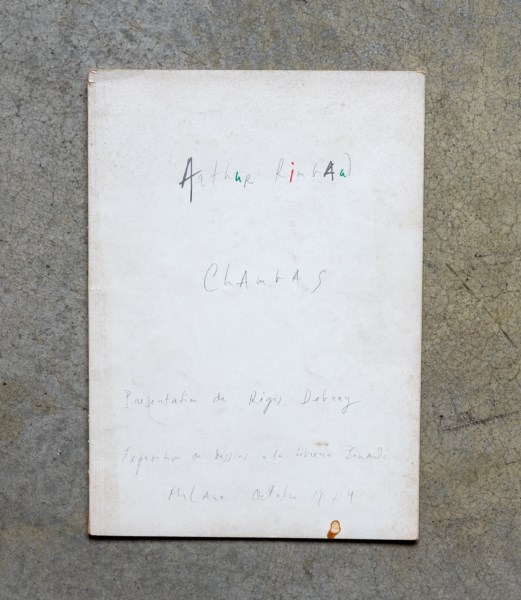 Arthur Rimbaud
Chambas
Présentation de Régis Debray
Exposition de dessins a la librairie
Milano Octobre 19